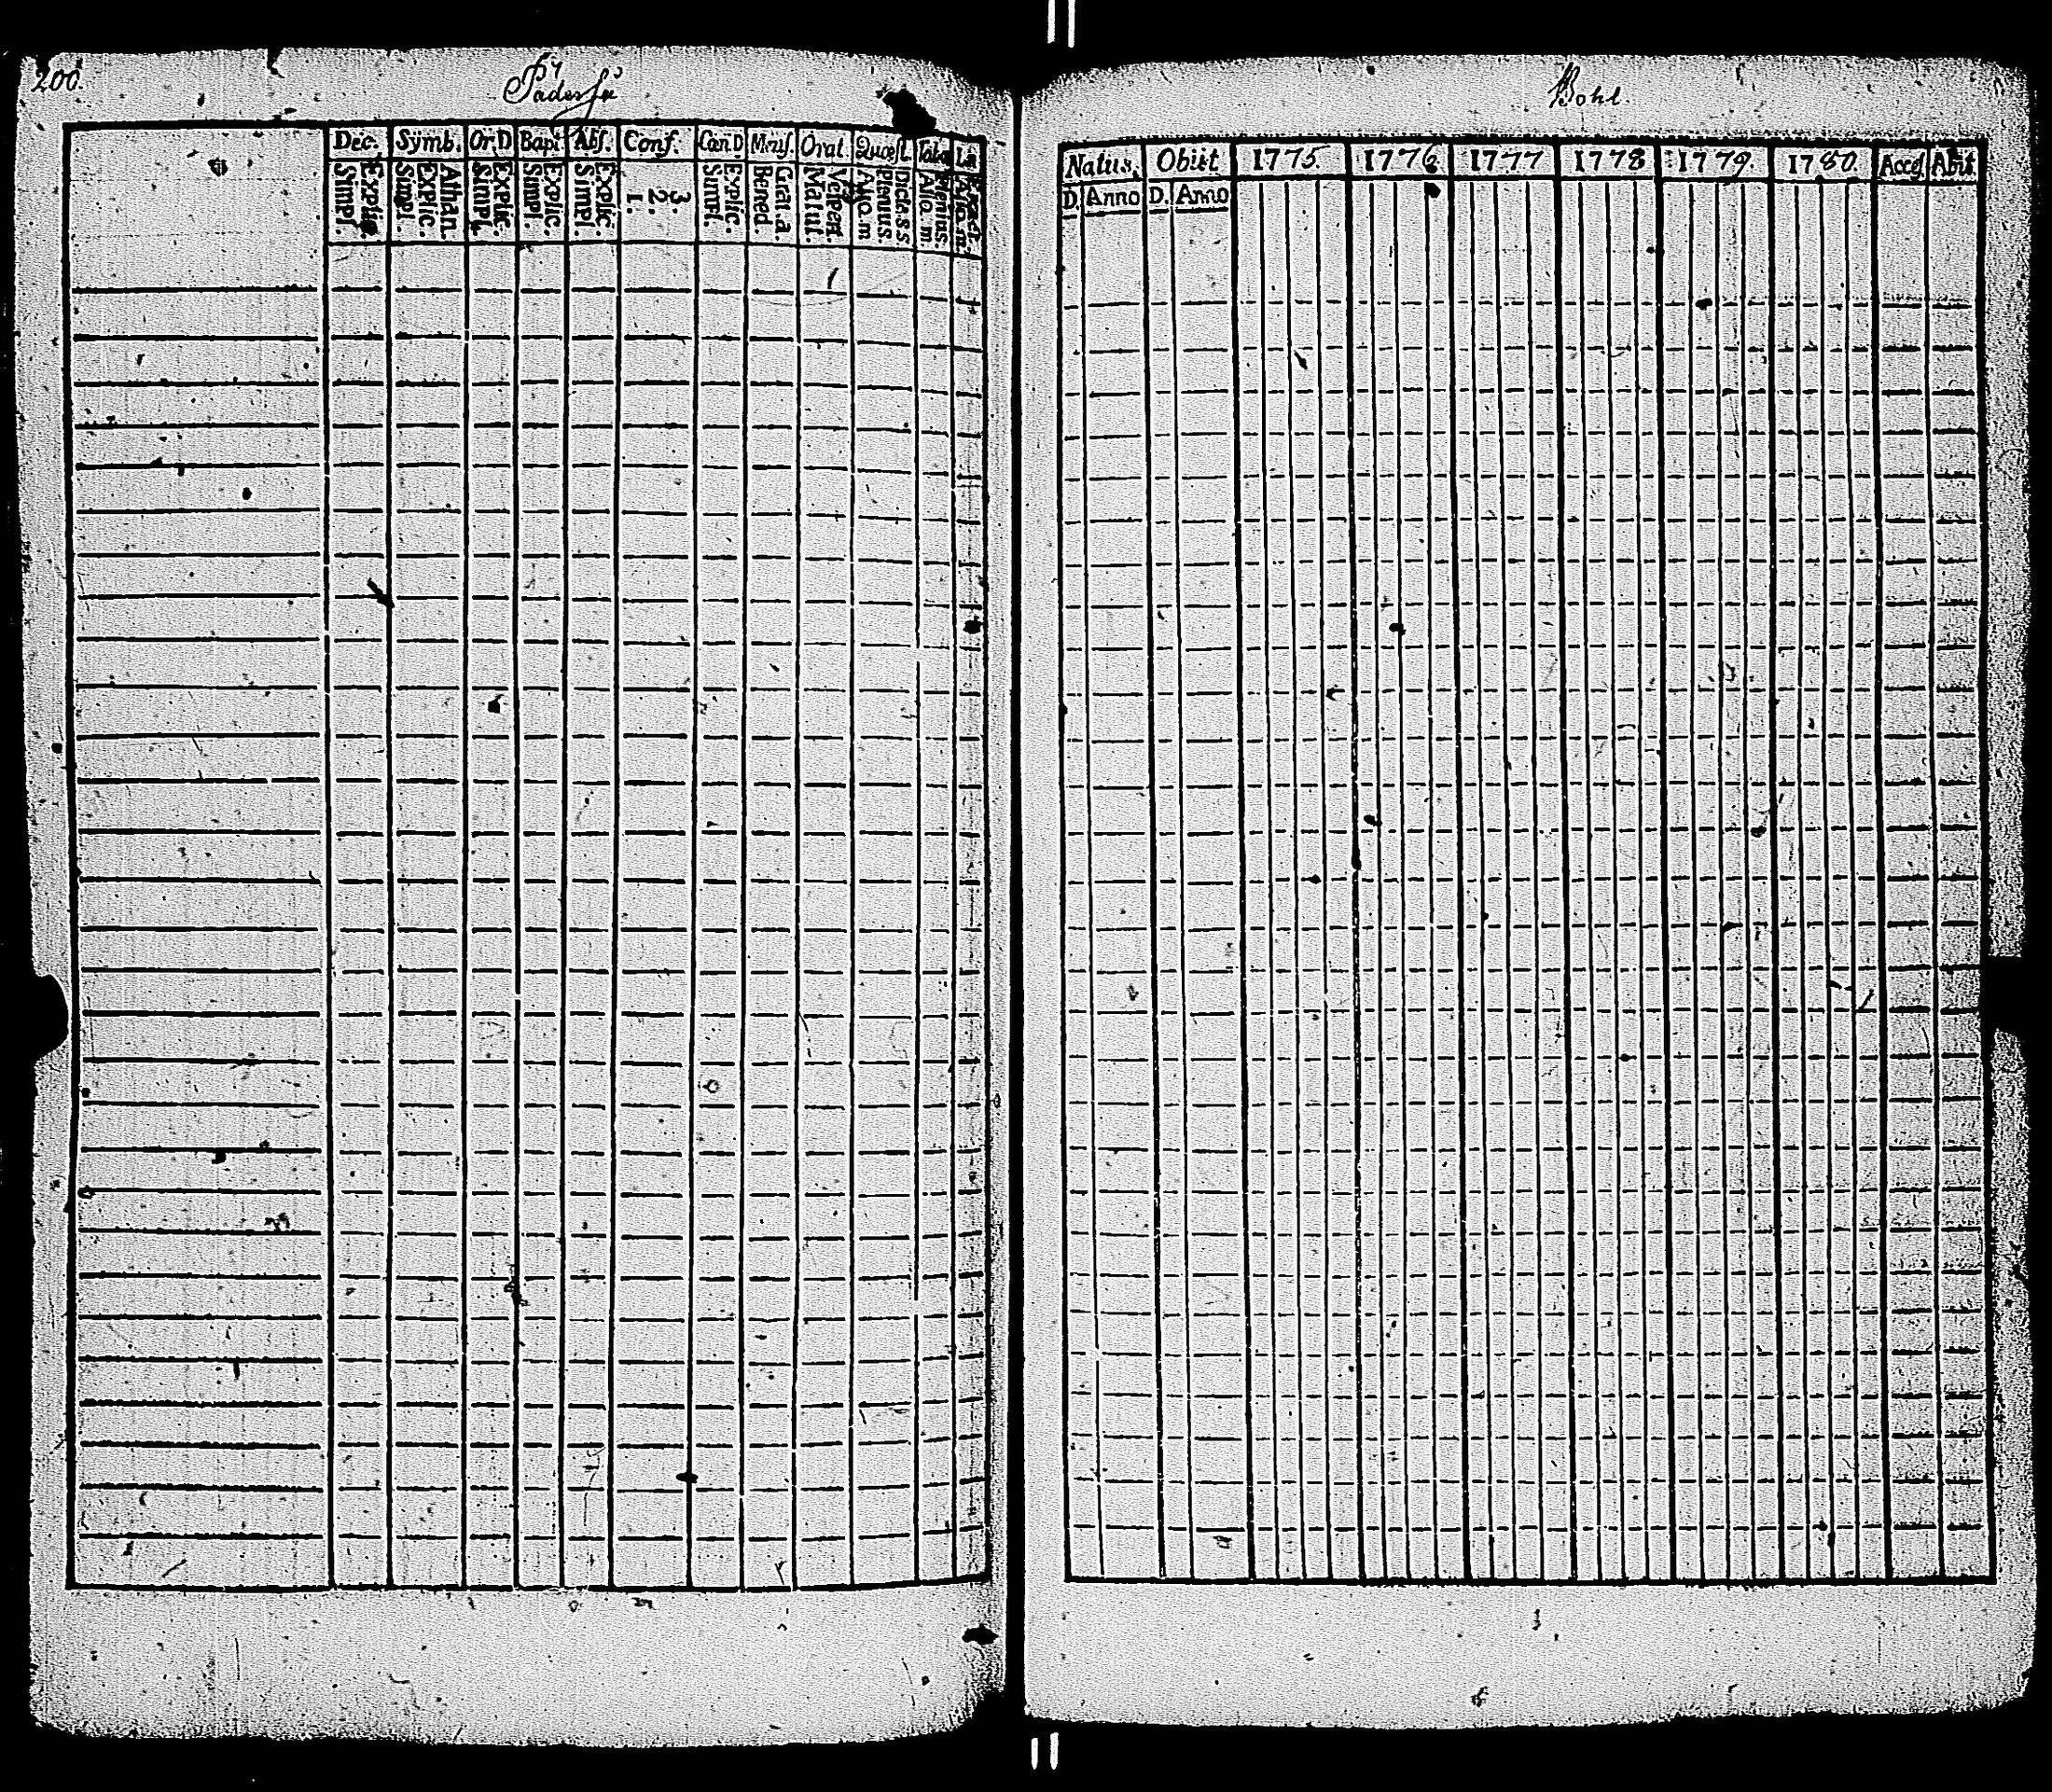 200.
Dec. Symb. Or.D Bapt. Abs. Conf. Cœn.D Mens. Orat. Quæst. Tab.
Explic. Simpl. Athan. Explic. Simpl. Explic. Simpl. Explic. Simpl. Explic. Simpl. 3. 2. 1. Explic. Simpl. Grat. a. Bened. Vesper. Matut. Dicta s.s. Plenius. A◦o. m Plenius. A◦o. m
Natus. Obiit 1775. 1776 1777 1778 1779. 1780 Acces. Abit.
D. Anno D. Anno